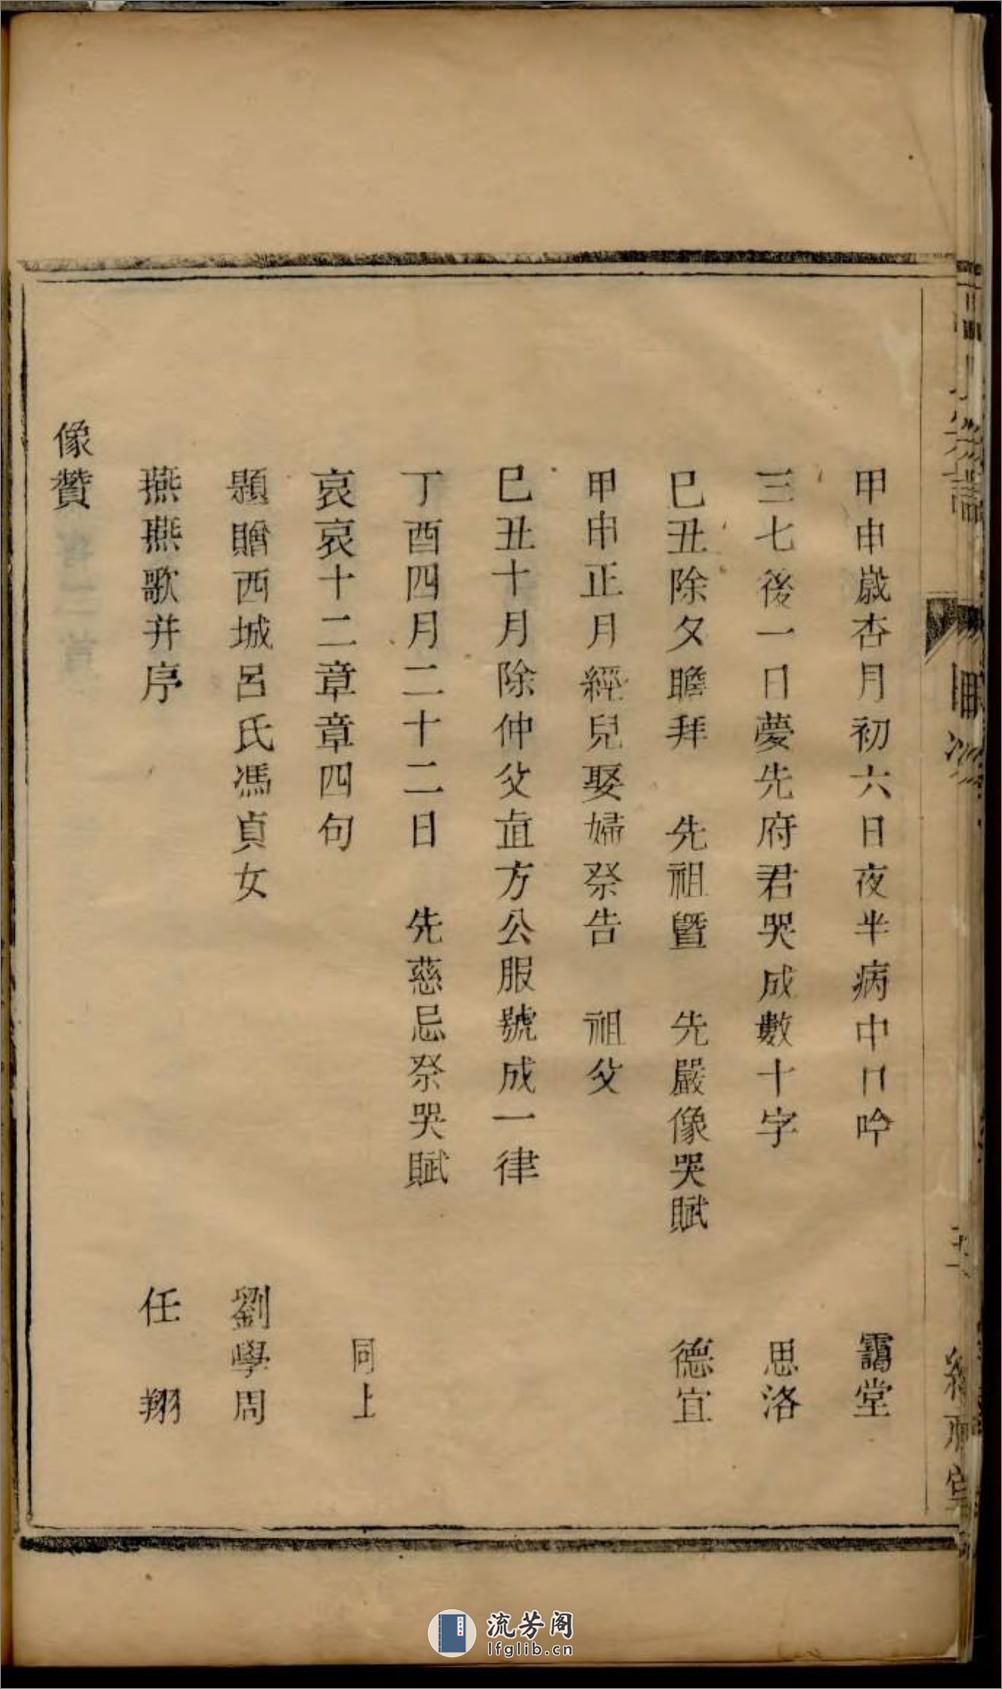 甲申歲杏月初六日夜半病中口吟 靄堂
三七後一日夢先府君哭成數十字 思洛
己丑除夕瞻拜 先祖暨 先嚴像哭賦 德宜
甲申正月經兒娶婦祭告 祖父
己丑十月除仲父直方公服號成一律
丁酉四月二十二日 先慈忌祭哭賦
哀哀十二章章四句 同上
題贈西城呂氏馮貞女 劉學周
燕燕歌并序 任翔
像贊
流芳阁
lfglib.cn